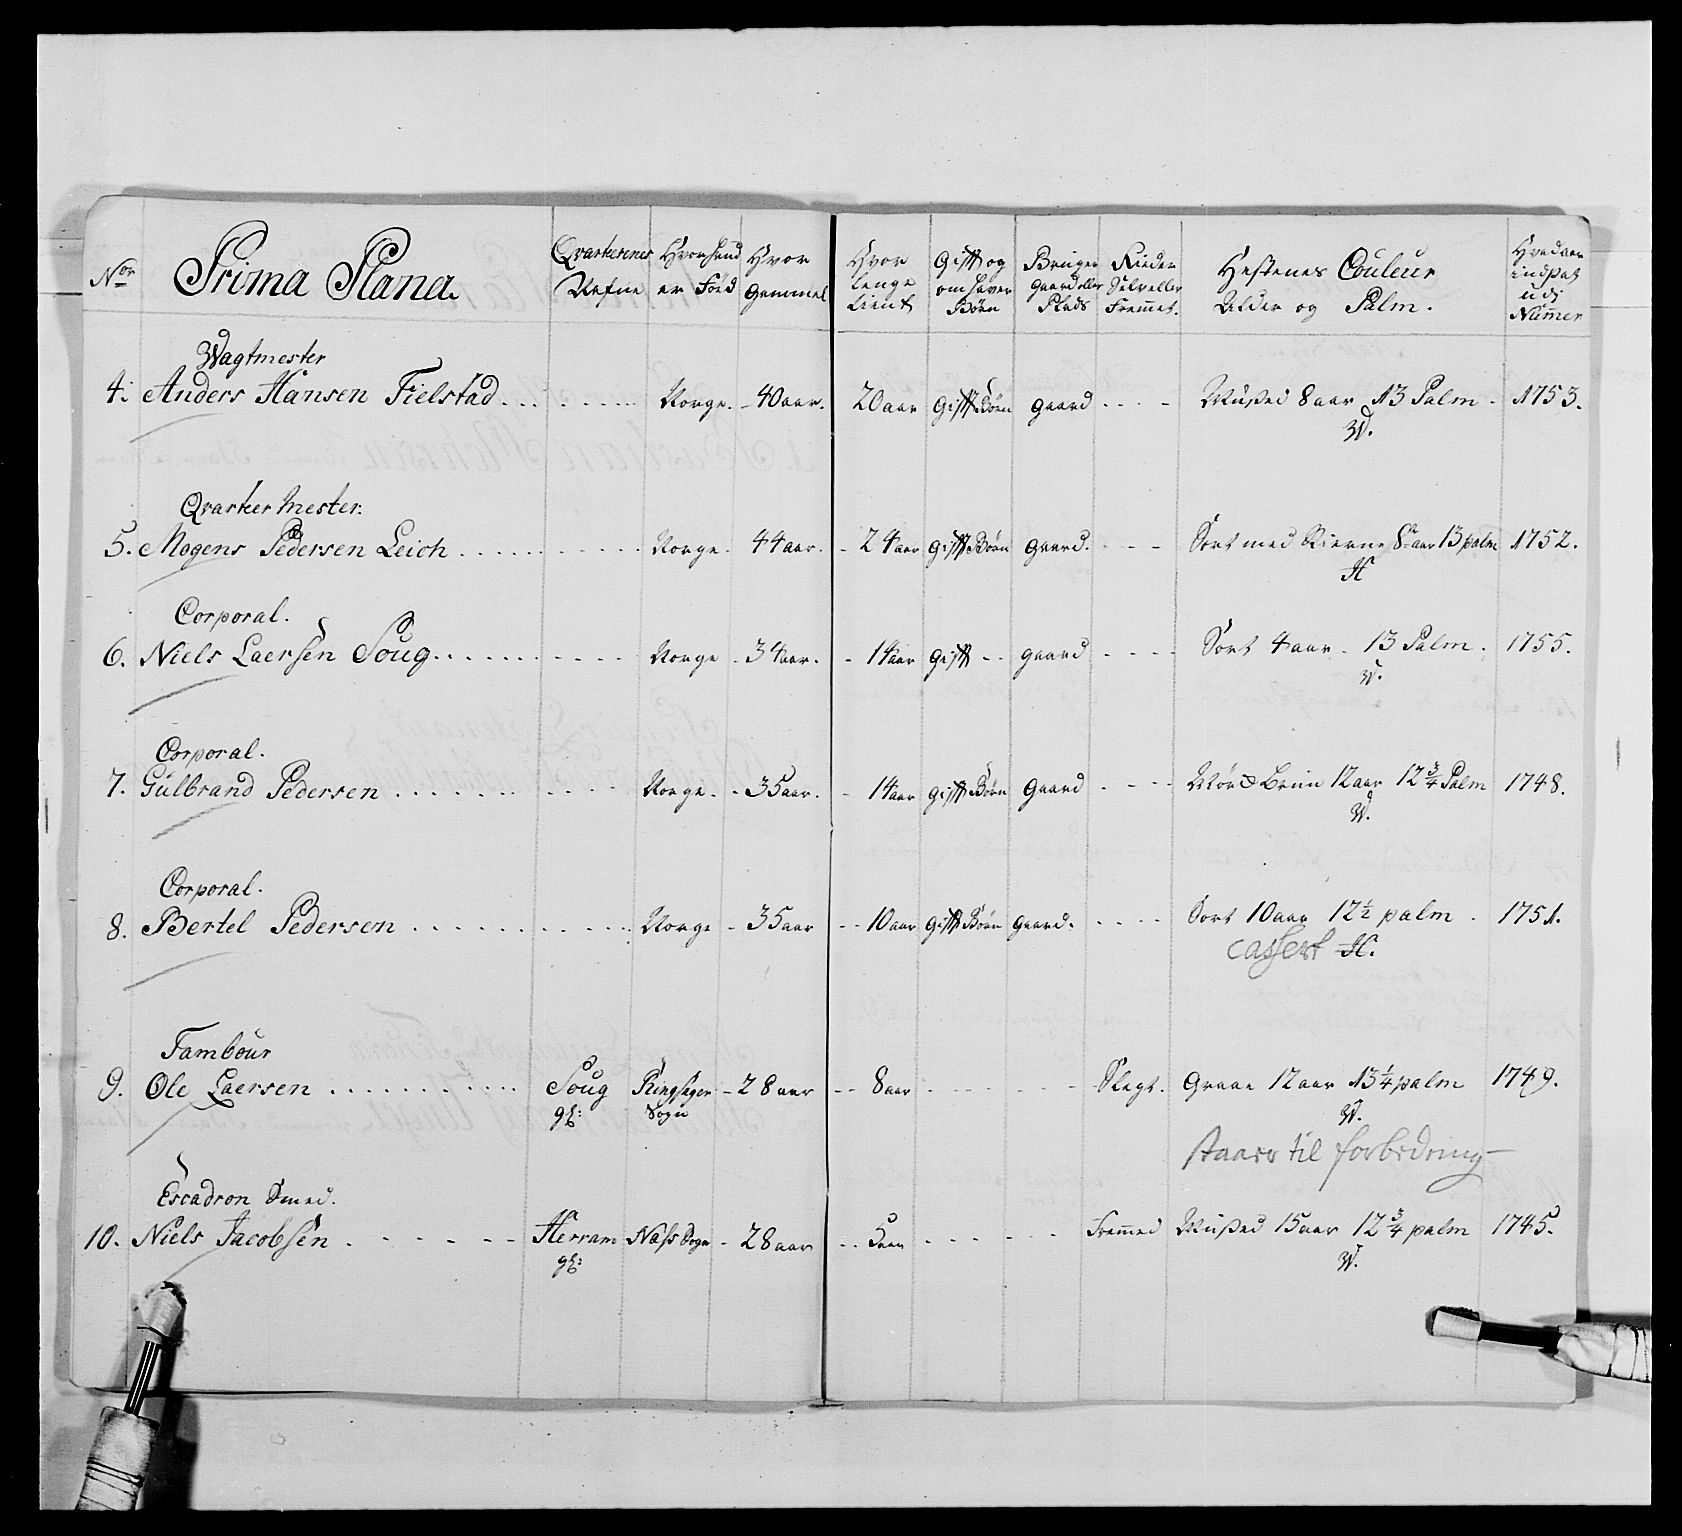 Nor Prima Plana. Qvarterenes Nafne Hvor hand er Föed Hvor Gammel Hvor Lenge tient Gift og om haver Börn Bruger Gaard eller Plads Rieder Selv eller Fremmet. Hestenes Couleur Alder og Palm. Hvad aar indsat udi Nummer
Wagtmester
4. Anders Hansen Fielstad Norge. 40 aar. 20 aar Gift Börn gaard Musßed 8 aar 13 Palm. 1753.
W.
Qvarter Mester.
5. Mogens Pedersen Leich Norge. 44 aar. 24 aar gift Börn gaard. Sort med Stierne 8 aar 13 palm 1752.
H
Corporal.
6. Niels Laersen Soug Norge 34 aar. 14 aar gift gaard Sort 4 aar 13 Palm. 1755.
W.
Corporal.
7. Gulbrand Pedersen Norge. 35 aar. 14 aar gift Börn gaard Mörch Brun 12 aar 12 3/4 Palm 1748.
W.
Corporal.
8. Bertel Pedersen Norge 35 aar 10 aar gift Börn gaard. Sort 10 aar 12 1/2 palm 1751.
cassert H.
Tambour
9. Ole Laersen Soug Ringsager 28 aar 8 aar Slegt. Graae 12 aar 13 1/4 palm 1749.
gl: Sogn W.
staaer til forbedring
Escadron Smed.
10. Niels Jacobsen Herram Næss Sogn 28 aar 5 aar Fremmed Musßed 15 aar 12 3/4 palm 1745.
gl: W.